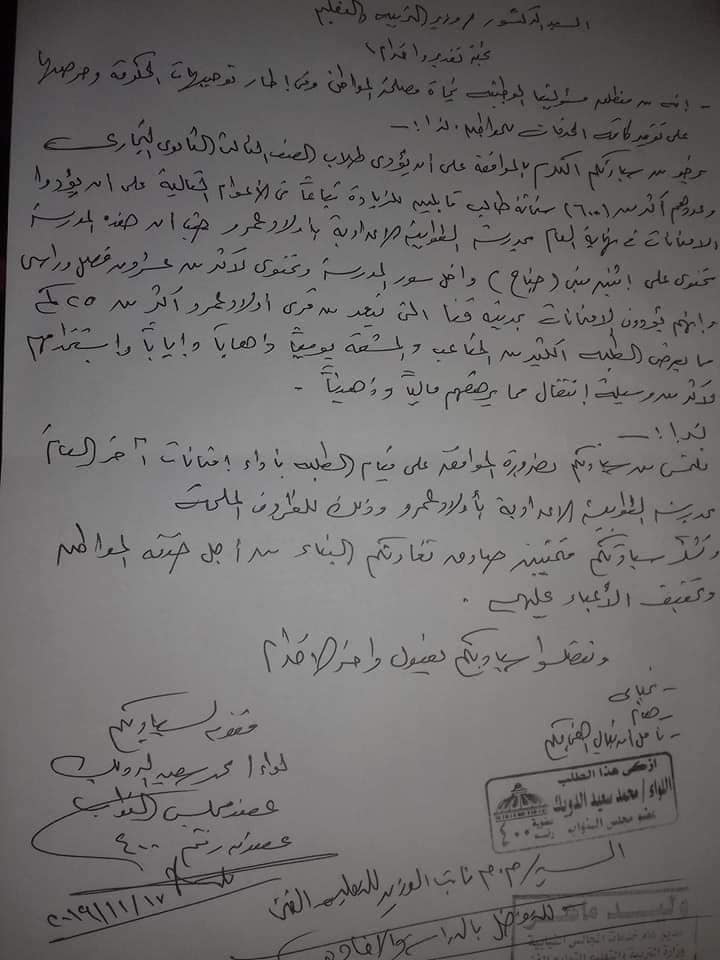 السيد الدكتور / وزير التربية والتعليم
تحية تقدير واحترام
- إنه من منطلق مسئوليتنا الوطنية تجاه مصلحة المواطن وفى إطار توجيهات الحكومة وحرصها
على تقديم كافة الخدمات للمواطن . لذا :-
نرجو من سيادتكم التكرم بالموافقة على أن يؤدى طلاب الصف الثالث الثانوى التجارى
وعددهم أكثر من (٦٠٠) ستمائة طالب قابلين للزيادة تباعاً فى الأعوام التالية على أن يؤدوا
الامتحانات فى نهاية العام بمدرسة الطوابية الاعدادية بأولاد عمرو حيث أن هذه المدرسة
تحتوى على اثنين مبنى (جناح) داخل سور المدرسة وتحتوى لأكثر من عشرون فصل دراسى
وأنهم يؤدون الامتحانات بمدينة قنا التى تبعد عن قرى أولاد عمرو أكثر من ٢٥ كم
مما يعرض الطلبة الكثير من المتاعب والمشقة يومياً ذهاباً وإياباً واستخدامهم
لأكثر من وسيلة إنتقال مما يرهقهم مالياً وذهنياً .
لذا :-
نلتمس من سيادتكم بضرورة الموافقة على قيام الطلبة بأداء امتحانات آخر العام
بمدرسة الطوابية الاعدادية بأولاد عمرو وذلك للظروف الملحة
ونشكر سيادتكم متمنين صادق تعاونكم البناء من أجل خدمة المواطن
وتخفيف الأعباء عليهم .
وتفضلوا سيادتكم بقبول وافر الاحترام
مقدمه لسيادتكم
لواء / محمد سعيد الدويك
عضو مجلس النواب
عضوية رقم ٤٠٠
٢٠١٩/١١/١٧
- تحياتى
- هام
أزكى هذا الطلب
اللواء / محمد سعيد الدويك
عضو مجلس النواب
عضوية رقم ٤٠٠
السيد / م.م نائب الوزير للتعليم الفنى
للتفضل بالدراسة والإفادة
مدير عام خدمات المجالس النيابية
وزارة التربية والتعليم والتعليم الفنى